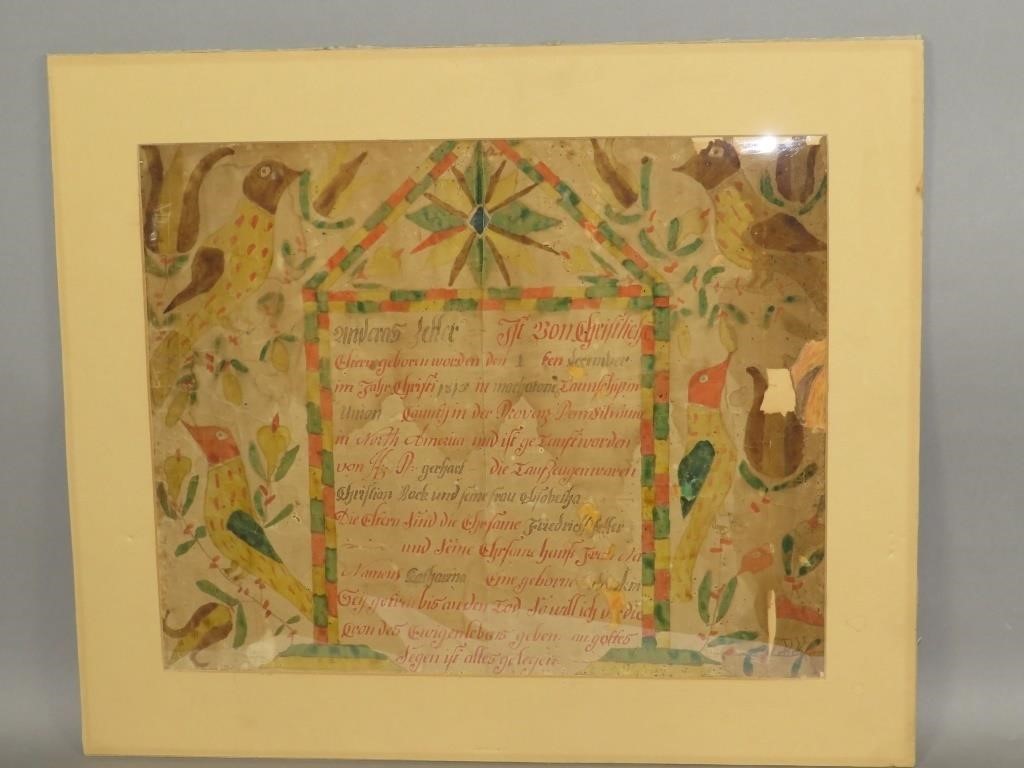 Anderas Ist von Christliche
Eltern geboren worden den 1 ten December
im Jahr Christi 1818 in Taunschip in
Union Caunty in der Provenz
in North America und ist getauft worden
von gerhart die Taufzeugen waren
Christian Bock und seine frau Elisabetha
Die Eltern Sind die Ehrsame Friedrich
und Seine Ehrsame hauß Frau der
Namens Catharina Eine geborne
Sey getreu bis an den Tod So will ich dir die
Cron des Ewigenlebens geben an gottes
Segen ist alles gelegen